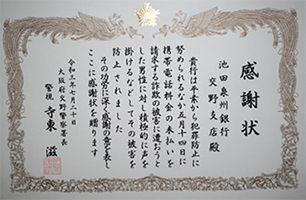 感謝状
池田泉州銀行
交野支店殿
貴行は平素から犯罪防止に
努められるなか五月十四日に
携帯電話料金の未払いを
請求する詐欺の被害に遭おうと
した男性に対し積極的に声を
掛けるなどしてその被害を
防止されました
その功労に深く感謝の意を表し
ここに感謝状を贈ります
令和三年七月二十日
大阪府交野警察署長
警視 寺東 滋